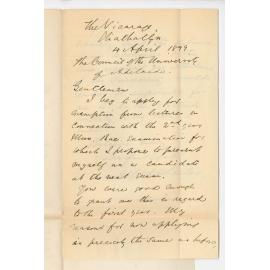 The Vicarage,
Strathalbyn
4 April 1899.
The Council of the University
of Adelaide.
Gentlemen
I beg to apply for
exemption from lectures in
connection with the 2nd year
Mus. Bac. Examination for
which I propose to present
myself as a candidate
at the next exam.
You were good enough
to grant me this as regard
to the first year. My
reasons for now applying
are precisely the same as before